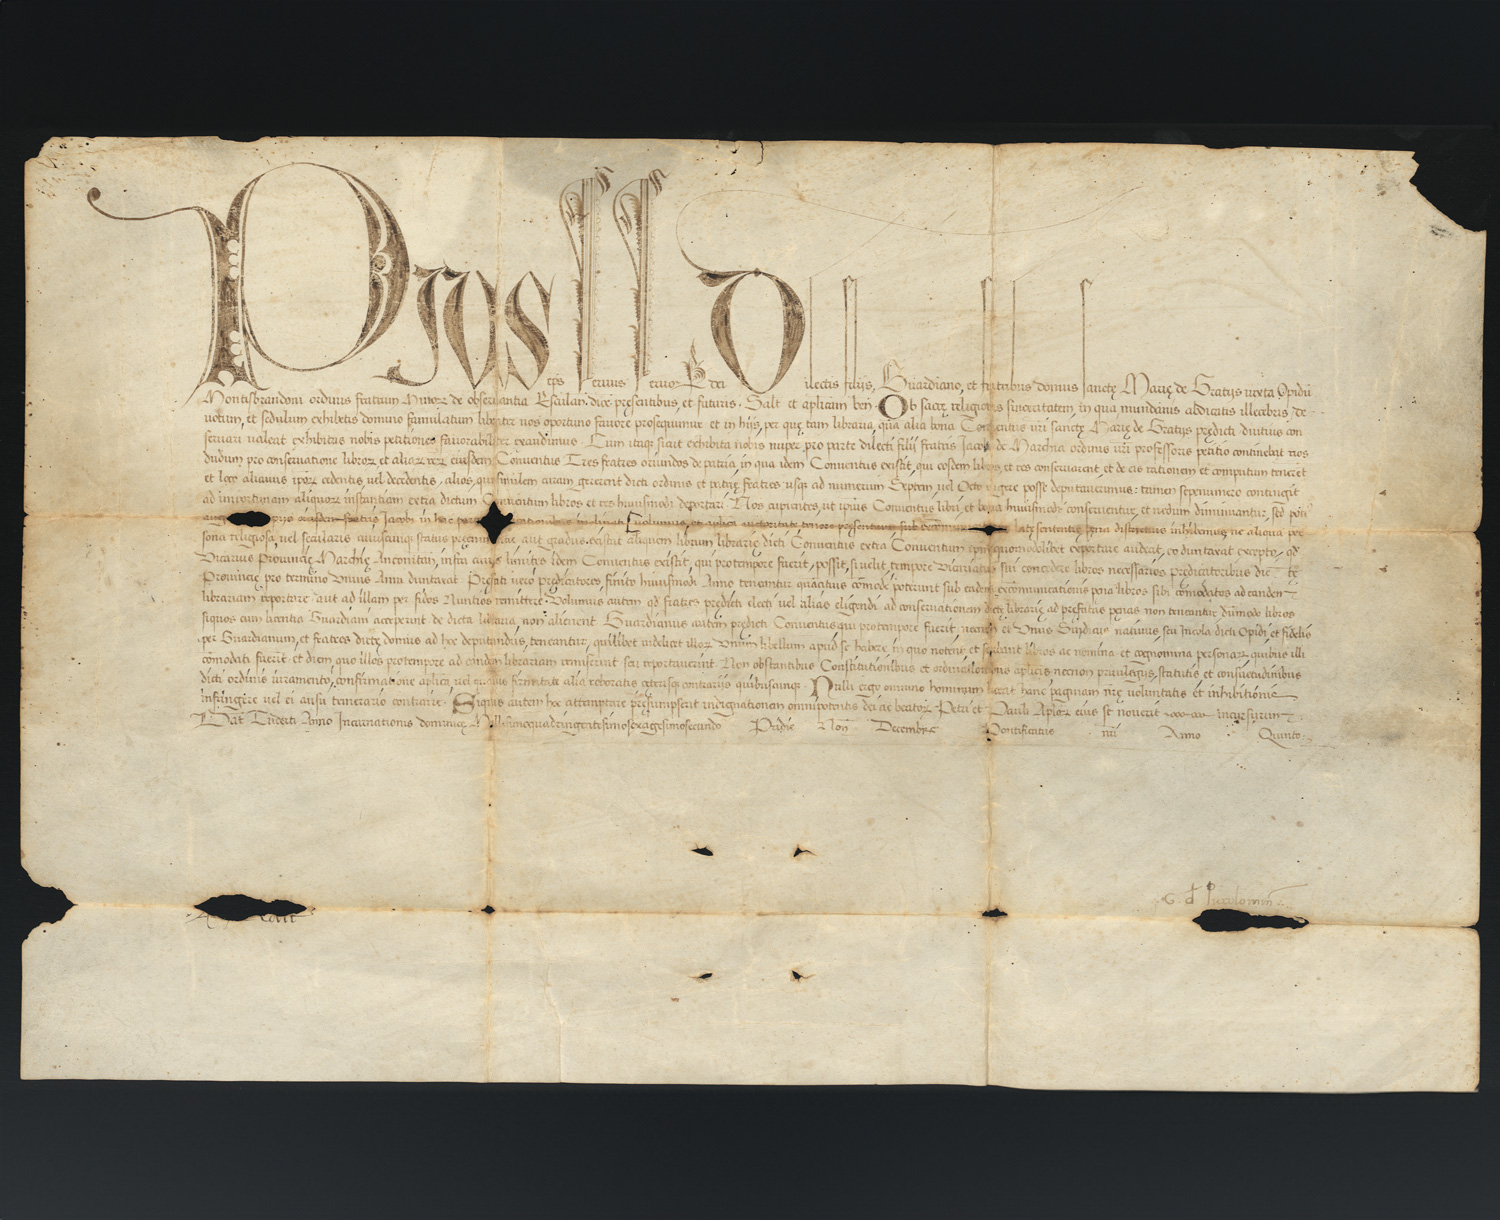 Pius eps servus servorꝝ dei Dilectis filijs, Guardiano, et fratribus domus sanctę Marię de Gratijs iuxta Opidũ
Montisbrandoni ordinis fratrum Minorꝝ de observantia Esculan. dioc̃ pręsentibus, et futuris. Salt̃ et aplicam ben̄ Ob sacrę religionis sinceritatem, in qua mundanis abdicatis illecebris de
votum, et sedulum exhibetis domino famulatum libenter nos oportuno favore prosequimur et in hijs, per quę tam libraria, quã alia bona Conventus vr̃i sanctę Marię de Gratijs prędicti divitius con
servari valeant exhibitas nobis petitiones favorabiliter exaudimus. Cum itaqꝫ sicut exhibita nobis nuper pro parte dilecti filij fratris Jacobi de Marchia ordinis vr̃i professoris petitio continebat nos
dudum pro conservatione librorꝝ et aliarꝝ rerꝝ eiusdem Conventus Tres fratres oriundos de patria in qua idem Conventus existit, qui eosdem libros, et res conservarent et de eis rationem et computum tenerēt
et loco alicuius ipsorꝝ cedentis vel decedentis, alios, qui similem curam gererent dicti ordinis et patrię fratres usqꝫ ad numerum Septem, vel Octo eligere posse deputaverimus: tamen sepenumero contingit
ad importunam aliquorꝝ instantiam extra dictum Conventum libros et res huiusmodi deportari Nos cupientes, ut ipsius Conventus libri, et bona huiusmodi conserventur, et nedum diminuantur, sed poti⁹
eiusdem fratris Jacobi in hac inclinati volumus, et aplica auctoritate tenore presentium sub latę sententię pena districtius inhibemus, ne aliqua per
sona religiosa, vel secularis cuiuscunqꝫ status preeminentie aut gradus existat aliquem librum librarię dicti Conventus extra Conventum ipsum quomodolibet exportare audeat, eo duntaxat excepto, qđ
Vicarius Provincię Marchię Anconitan̄, infra cuius limites Idem Conventus existit, qui protempore fuerit, possit, si velit, tempore Vicariatus sui concedere libros necessarios predicatoribus
Provincię pro termino Unius Anni duntaxat Prefati vero predicatores, finito huiusmodi Anno teneantur quãtotius com̃ode poterunt sub eadem excom̃unicationis pena libros sibi com̃odatos ad eandem
librariam reportare, aut ad illam per fidos Nuntios remittere. Volumus autem qđ fratres predicti electi vel alias eligendi ad conservationem dictę librarię ad prefatas penas non teneantur dum̃odo libros
siquos cum licentia Guardiani acceperint de dicta libraria, non alienent Guardianus autem predicti Conventus qui protempore fuerit, necnon et Unus Sindicus nativus seu Incola dicti Opidi et fidelis
per Guardianum, et fratres dictę domus ad hoc deputandus, teneantur, quilibet videlicet illorꝝ Unum libellum apud se habere, in quo notent et scribant libros ac nomina et cognomina personarꝝ quibus illi
com̃odati fuerit et diem quo illos protempore ad eandem librariam remiserint seu reportaverint. Non obstantibus Constitutionibus et ordinationibus aplicis necnon privilegijs, statutis et consuetudinibus
dicti ordinis iuramento, confirmatione aplica, vel quavis firmitate alia roboratis ceterisqꝫ contrarijs quibuscunqꝫ. Nulli ergo omnino hominum liceat hanc paginam nr̃e voluntatis et inhibitionis
infringere vel ei ausu temerario contraire. Siquis autem hoc attemptare presumpserit indignationem omnipotentis dei ac beatorꝝ Petri et Pauli Aplorꝝ eius se noverit incursurum.
Dat̃ Tuderti Anno Incarnationis dominicę Millesimoquadringentesimosexagesimosecundo Pridie Non̄ Decembr̃ Pontificatus nr̃i Anno Quinto